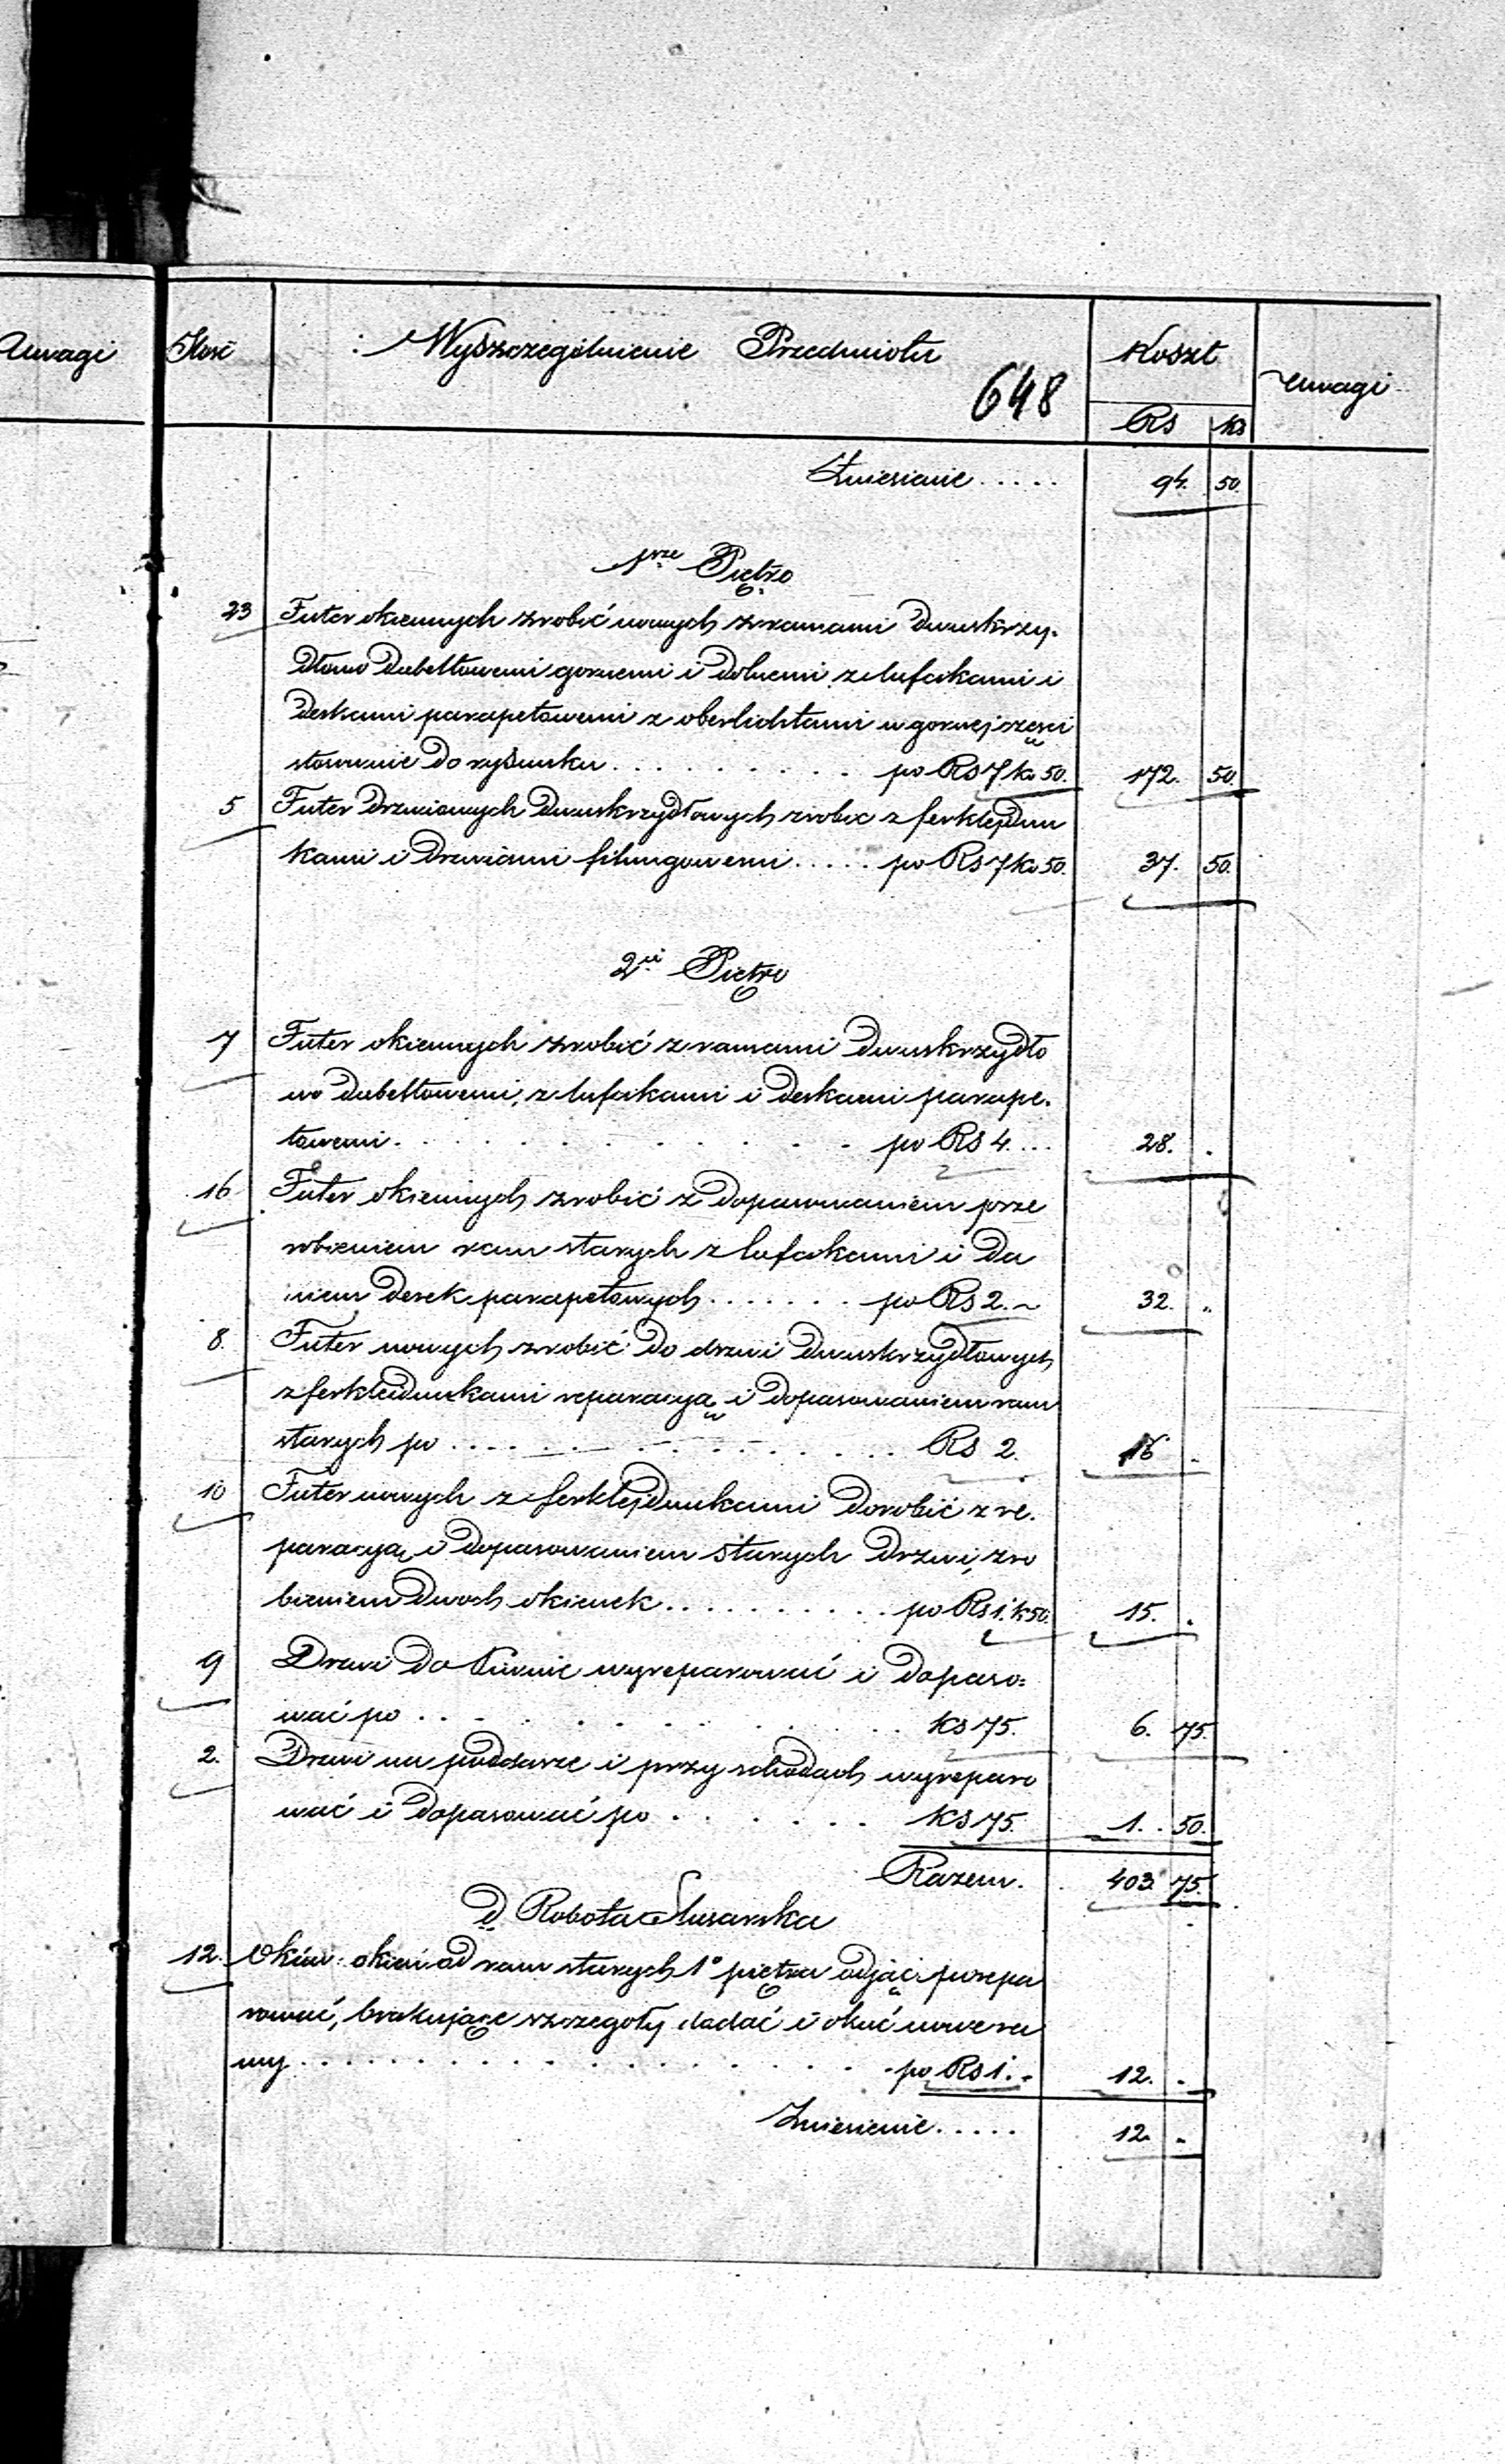 Uwagi
Ilość Wyszczególnienie Przedmiotu Koszt Uwagi
648
Rs ks
Zniesienie ..... 94. 50.
1sze Piętro
23 Futer okiennych zrobić nowych z ramami dwuskrzy-
dłowo dubeltowemi gornemi i dolnemi z lufcikami i
deskami parapetowemi z oberlichtami w gornej częsci
stosownie do rysunku . . . . . . . . . po Rs 7 ks 50. 172. 50.
5 Futer drzwiowych dwuskrzydłowych zrobic z ferklejdun
kami i drzwiami filungowemi ..... po Rs 7 ks 50. 37. 50.
2ie Piętro
7 Futer okiennych zrobić z ramami dwuskrzydło
wo dubeltowemi, z lufcikami i deskami parape-
towemi . . . . . . . . . . po Rs 4. ... 28. .
16 Futer okiennych zrobić z dopasowaniem prze
robieniem ram starych z lufcikami i da
niem desek parapetowych ....... po Rs 2. ~ 32. "
8. Futer nowych zrobić do drzwi dwuskrzydłowych
z ferkleidunkami reparacyą i dopasowaniem ram
starych po . . . . . . . . . . . Rs 2. 16 .
10 Futer nowych z ferklejdunkami dorobić z re-
paracyą i dopasowaniem starych drzwi, zro
bieniem dwoch okienek .......... po Rs 1. k 50. 15. .
9 Drzwi do Piwnic wyreparować i dopaso=
wać po . . . . . . . . . . . ks 75. 6. 75.
2. Drzwi na poddasze i przy schodach wyreparo
wać i dopasować po . . . . . . ks 75. 1. . 50.
Razem. 403. 75.
D Robota Slusarska
12. Okuć okien od ram starych 1o piętra odjąć, porepa
rować, brakujące szczegoły dodać i okuć nowe ra
my . . . . . . . . . . . . . . po Rs 1. - 12. .
Zniesienie ..... 12. "